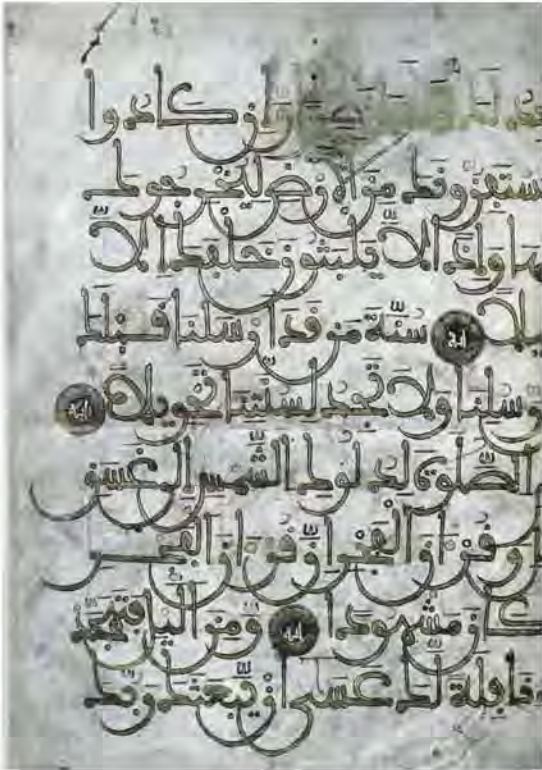 وان كادوا
ستفزونك من الارض ليخرجوك
ها واذا لا يلبثون خلفك الا
يلا اية سنة من قد ارسلنا قبلك
رسلنا ولا تجد لسنتنا تحويلا اية
الصلوة لدلوك الشمس الى غسق
وقران الفجر ان قران الفجر
كان مشهودا اية ومن اليل فتهجد
نافلة لك عسى ان يبعثك ربك